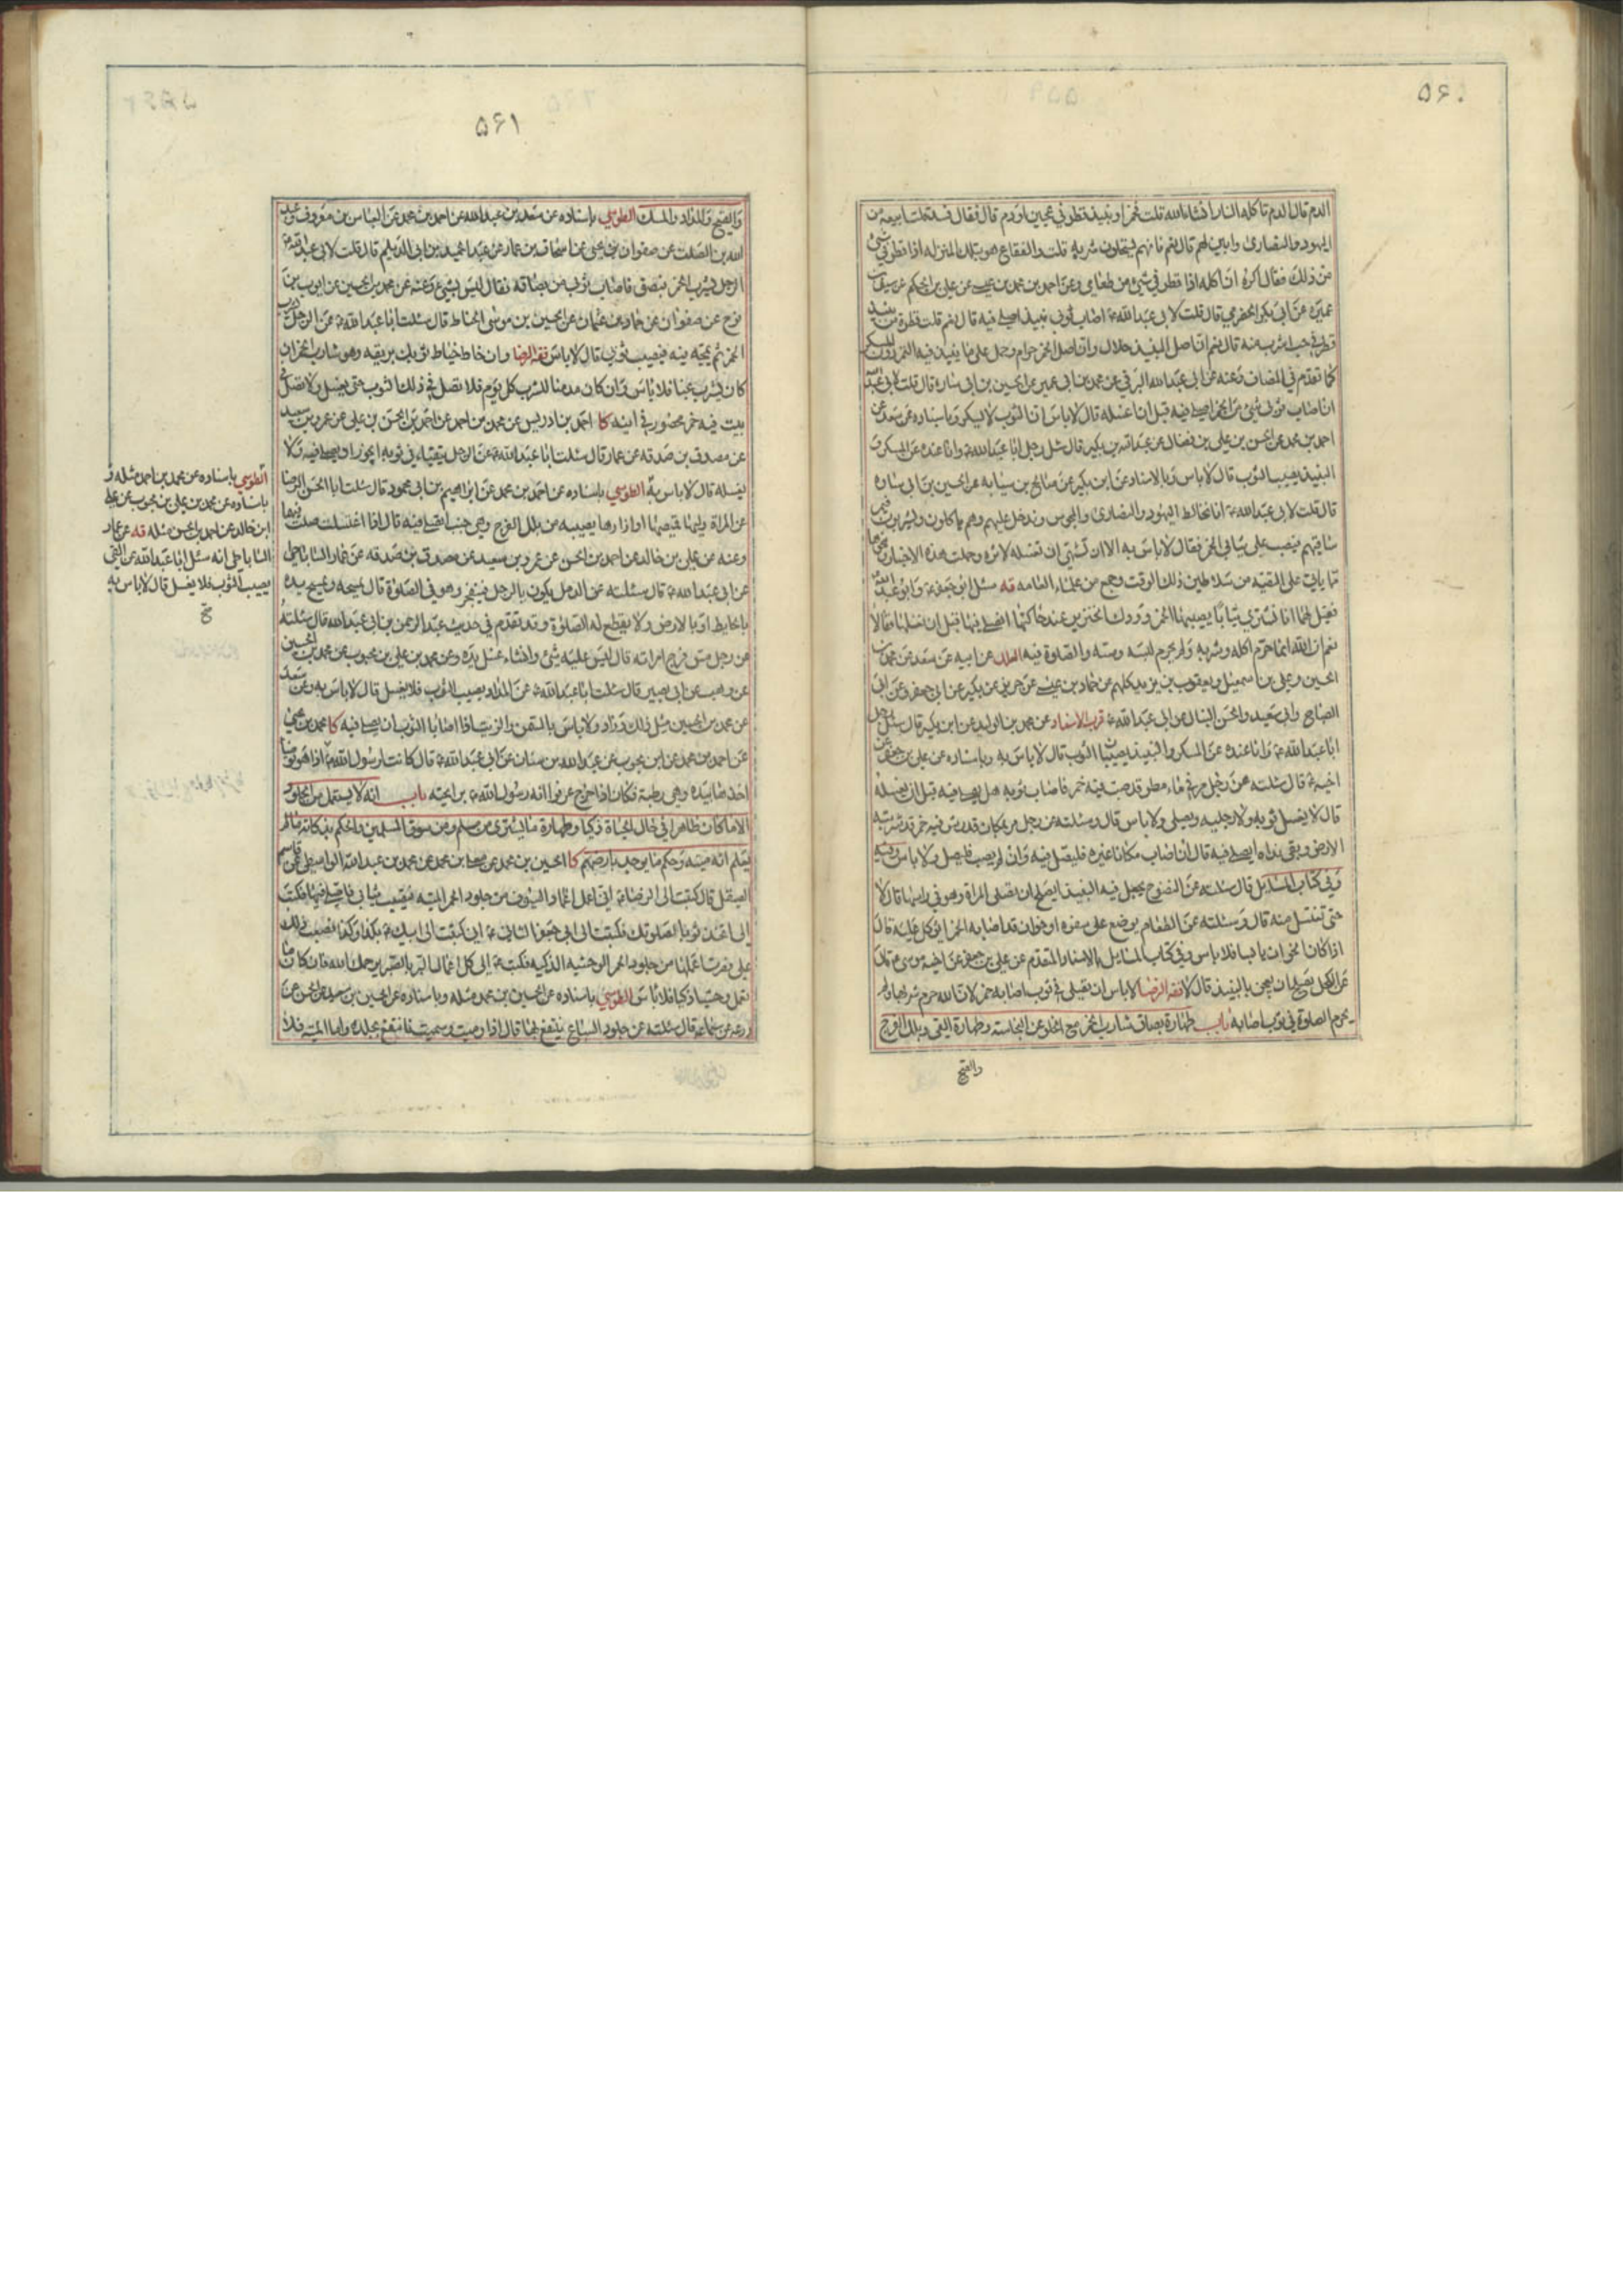 ۵۶۰
الدم قال الدم تاكله النار انشاء الله قلت فخمر او نبيذ قطر في عجين او دم قال فقال فسد قلت ابيعه من
اليهود والنصارى وابين لهم قال نعم فانهم يستحلون شربه قلت والفقاع هو بتلك المنزلة اذا قطر في شئ
من ذلك فقال اكره ان اكله اذا قطر في شئ من طعامي وعن احمد بن محمد بن عيسى عن علي بن الحكم عن سيف بن
عميرة عن ابي بكر الحضرمي قال قلت لابي عبد الله ع اصاب ثوبي نبيذ اصلي فيه قال نعم قلت قطرة من نبيذ
قطر في حب اشرب منه قال نعم ان اصل النبيذ حلال وان اصل الخمر حرام وحمل على ما ينبذ فيه التمر دون المسكر
كما تقدم في المضاف وعنه عن ابي عبد الله البرقي عن محمد بن ابي عمير عن الحسين بن ابي سارة قال قلت لابي عبد الله
ان اصاب ثوبي شئ من الخمر اصلي فيه قبل ان اغسله قال لا باس ان الثوب لا يسكر وباسناده عن سعد عن
احمد بن محمد عن الحسن بن علي بن فضال عن عبد الله بن بكير قال سئل رجل ابا عبد الله ع وانا عنده عن المسكر و
النبيذ يصيب الثوب قال لا باس وبالاسناد عن ابن بكير عن صالح بن سيابه عن الحسين بن ابي سارة
قال قلت لابي عبد الله ع انا نخالط اليهود والنصارى والمجوس وندخل عليهم وهم ياكلون ويشربون فيمر
ساقيهم فيصب على ثيابي الخمر فقال لا باس به الا ان تشتهي ان تغسله لاثره وحملت هذه الاخبار ونحوها
مما ياتي على التقيه من سلاطين ذلك الوقت وجمع من علماء العامه قه سئل ابو جعفر ع وابو عبد الله
فقيل لهما انا نشتري ثيابا يصيبها الخمر وودك الخنزير عند حاكتها انصلي فيها قبل ان نغسلها فقالا
نعم ان الله انما حرم اكله وشربه ولم يحرم لبسه ومسه والصلوة فيه العلل عن ابيه عن سعد عن محمد بن
الحسين وعلي بن اسمعيل ويعقوب بن يزيد كلهم عن حماد بن عيسى عن حريز عن بكير عن ابي جعفر وعن ابي
الصباح وابي سعيد والحسن النبال عن ابي عبد الله ع قرب الاسناد عن محمد بن الوليد عن ابن بكير قال سئل رجل
ابا عبد الله ع وانا عنده عن المسكر والنبيذ يصيبان الثوب قال لا باس به وباسناده عن علي بن جعفر عن
اخيه ع قال سئلته عن رجل مر في ماء مطر قد صبت فيه خمر فاصاب ثوبه هل يصلي فيه قبل ان يغسله
قال لا يغسل ثوبه ولا رجليه ويصلي ولا باس قال وسئلته عن رجل مر بمكان قد رش فيه خمر قد شربته
الارض وبقي نداه ايصلي فيه قال ان اصاب مكانا غيره فليصل فيه وان لم يصب فليصل ولا باس وفيه
وفي كتاب المسائل قال سئلته عن النضوح يجعل فيه النبيذ ايصلح ان تصلي المراة وهو في راسها قال لا
حتى تغتسل منه قال وسئلته عن الطعام يوضع على سفره او خوان قد اصابه الخمر ايؤكل عليه قال
اذا كان الخوان يابسا فلا باس وفي كتاب المسائل بالاسناد المتقدم عن علي بن جعفر عن اخيه موسى ع قال
عن الكحل يصلح ان يعجن بالنبيذ قال لا فقه الرضا لا باس ان تصلي في ثوب اصابه خمر لان الله حرم شربها ولم
يحرم الصلوة في ثوب اصابه باب طهارة بصاق شارب الخمر مع الخلو عن النجاسه وطهارة القئ وبلل الفرج
والقيح
۵۶۱
والقيح والمذاد والمسك الطوسي باسناده عن سعد بن عبد الله عن احمد بن محمد عن العباس بن معروف وعبد
الله بن الصلت عن صفوان بن يحيى عن اسحاق بن عمار عن عبد الحميد بن ابي الديلم قال قلت لابي عبد الله ع
الرجل يشرب الخمر فبصق فاصاب ثوبي من بصاقه فقال ليس بشئ وعنه عن محمد بن الحسين عن ايوب بن
نوح عن صفوان عن حماد بن عثمان عن الحسين بن موسى الحناط قال سئلت ابا عبد الله ع عن الرجل يشرب
الخمر ثم يمجه من فيه فيصيب ثوبي قال لا باس فقه الرضا وان خاط خياط ثوبك بريقه وهو شارب الخمر ان
كان يشرب غبا فلا باس وان كان مدمنا للشرب كل يوم فلا تصل في ذلك الثوب حتى يغسل ولا تصل في
بيت فيه خمر محصور في انيه كا احمد بن ادريس عن محمد بن احمد عن احمد بن الحسن بن علي عن عمرو بن سعيد
عن مصدق بن صدقه عن عمار قال سئلت ابا عبد الله ع عن الرجل يتقياء في ثوبه ايجوز ان يصلي فيه ولا
يغسله قال لا باس به الطوسي باسناده عن احمد بن محمد عن ابراهيم بن ابي محمود قال سئلت ابا الحسن الرضا
عن المراة وليها قميصها او ازارها يصيبه من بلل الفرج وهي جنب اتصلي فيه قال اذا اغتسلت صلت فيهما
وعنه عن علي بن خالد عن احمد بن الحسن عن عمرو بن سعيد عن مصدق بن صدقه عن عمار الساباطي
عن ابي عبد الله ع قال سئلته عن الدمل يكون بالرجل فينفجر وهو في الصلوة قال يمسحه ويمسح يده
بالحايط او بالارض ولا يقطع له الصلوة وقد تقدم في حديث عبد الرحمن بن ابي عبد الله قال سئلته
عن رجل مس فرج امراته قال ليس عليه شئ وان شاء غسل يده وعن محمد بن علي بن محبوب عن محمد بن الحسين
عن وهيب عن ابي بصير قال سئلت ابا عبد الله ع عن المذاد يصيب الثوب فلا يغسل قال لا باس به وعن سعد
عن محمد بن الحسين مثل ذلك وزاد ولا باس بالسمن والزيت اذا اصابا الثوب ان يصلي فيه كا محمد بن يحيى
عن احمد بن محمد عن ابن محبوب عن عبد الله بن سنان عن ابي عبد الله ع قال كانت لرسول الله ص ممسكه اذا هو توضا
اخذها بيده وهي رطبة فكان اذا خرج عرفوا انه رسول الله ص برائحته باب انه لا يستعمل من الجلود
الا ما كان ظاهرا في حال الحياة ذكيا وطهارة ما يشترى من مسلم ومن سوق المسلمين والحكم بذكاته ما لم
يعلم انه ميتة وحكم ما يوجد بارضهم كا الحسين بن محمد عن معلى بن محمد عن محمد بن عبد الله الواسطي عن قاسم
الصيقل قال كتبت الى الرضا ع اني اعمل اغماد السيوف من جلود الحمر الميتة فيصيب ثيابي فاصلي فيها فكتب
الي اتخذ ثوبا لصلوتك فكتبت الى ابي جعفر الثاني ع اني كتبت الى ابيك ع بكذا وكذا فصعب ذلك
علي فصرت اعملها من جلود الحمر الوحشيه الذكيه فكتب ع الي كل اعمال البر بالصبر يرحمك الله فان كان ما
تعمل وحشيا ذكيا فلا باس الطوسي باسناده عن الحسين بن محمد مثله وباسناده عن الحسين بن سعيد عن الحسن عن
زرعه عن سماعه قال سئلته عن جلود السباع ينتفع بها قال اذا رميت وسميت فانتفع بجلده واما الميتة فلا
الطوسي باسناده عن محمد بن احمد مثله و
باسناده عن محمد بن علي بن محبوب عن علي
ابن خالد عن احمد بن الحسن مثله قه عن عمار
الساباطي انه سئل ابا عبد الله عن القئ
يصيب الثوب فلا يغسل قال لا باس به